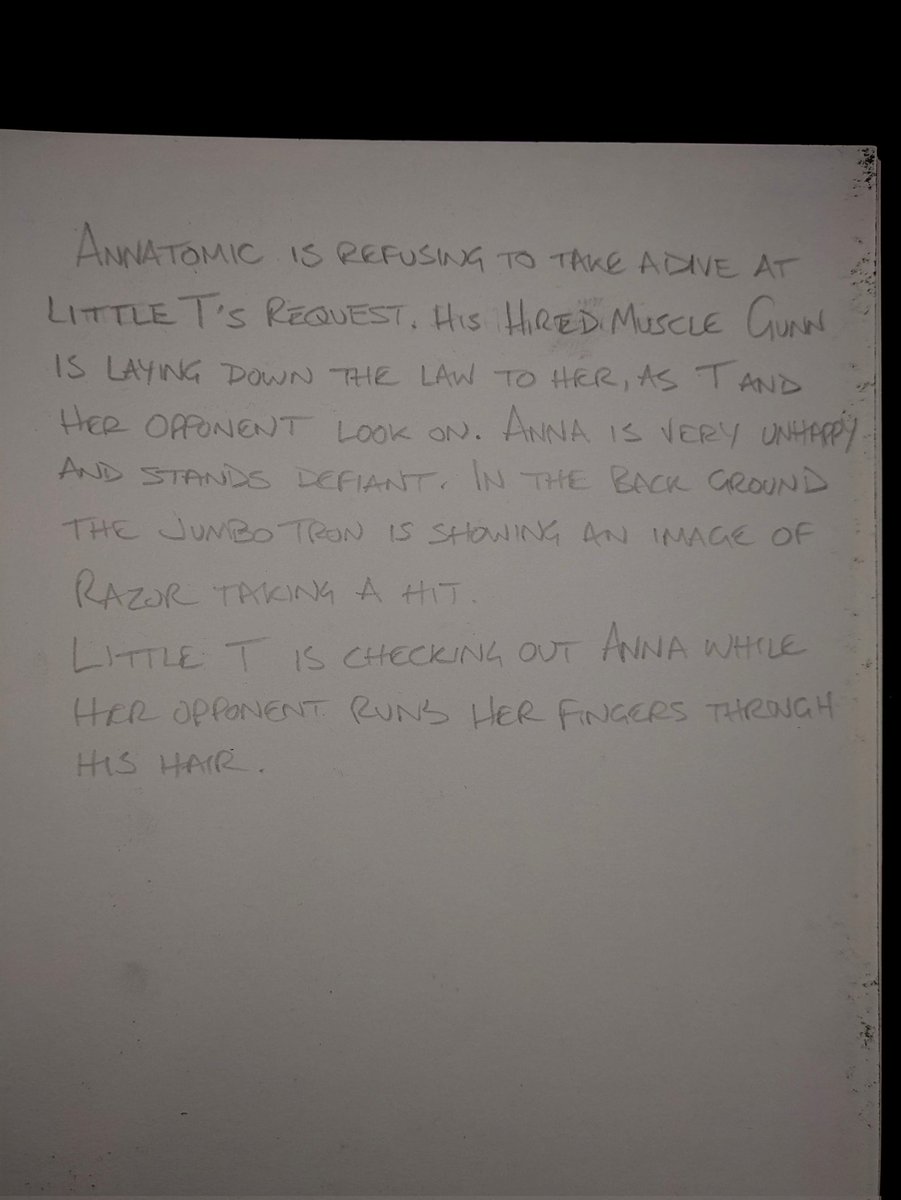 ANNATOMIC IS REFUSING TO TAKE A DIVE AT
LITTLE T'S REQUEST. HIS HIRED MUSCLE GUNN
IS LAYING DOWN THE LAW TO HER, AS T AND
HER OPPONENT LOOK ON. ANNA IS VERY UNHAPPY
AND STANDS DEFIANT. IN THE BACK GROUND
THE JUMBO TRON IS SHOWING AN IMAGE OF
RAZOR TAKING A HIT.
LITTLE T IS CHECKING OUT ANNA WHILE
HER OPPONENT RUNS HER FINGERS THROUGH
HIS HAIR.